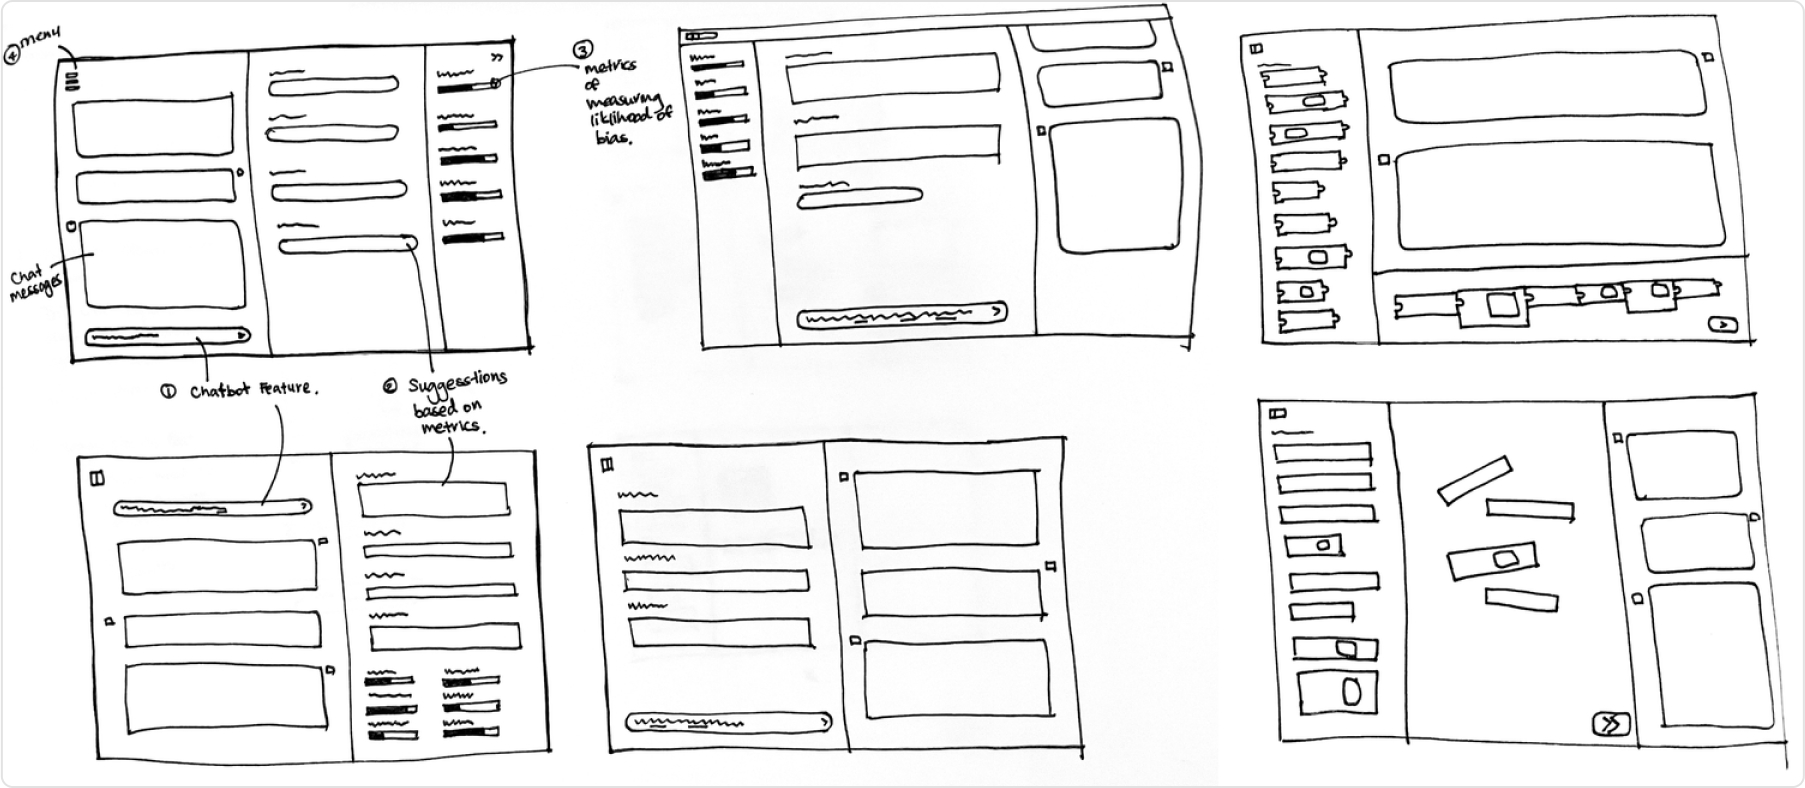 ④ menu
③
metrics
of
measuring
liklihood of
bias.
Chat
messages
① Chatbot Feature.
② Suggesstions
based on
metrics.